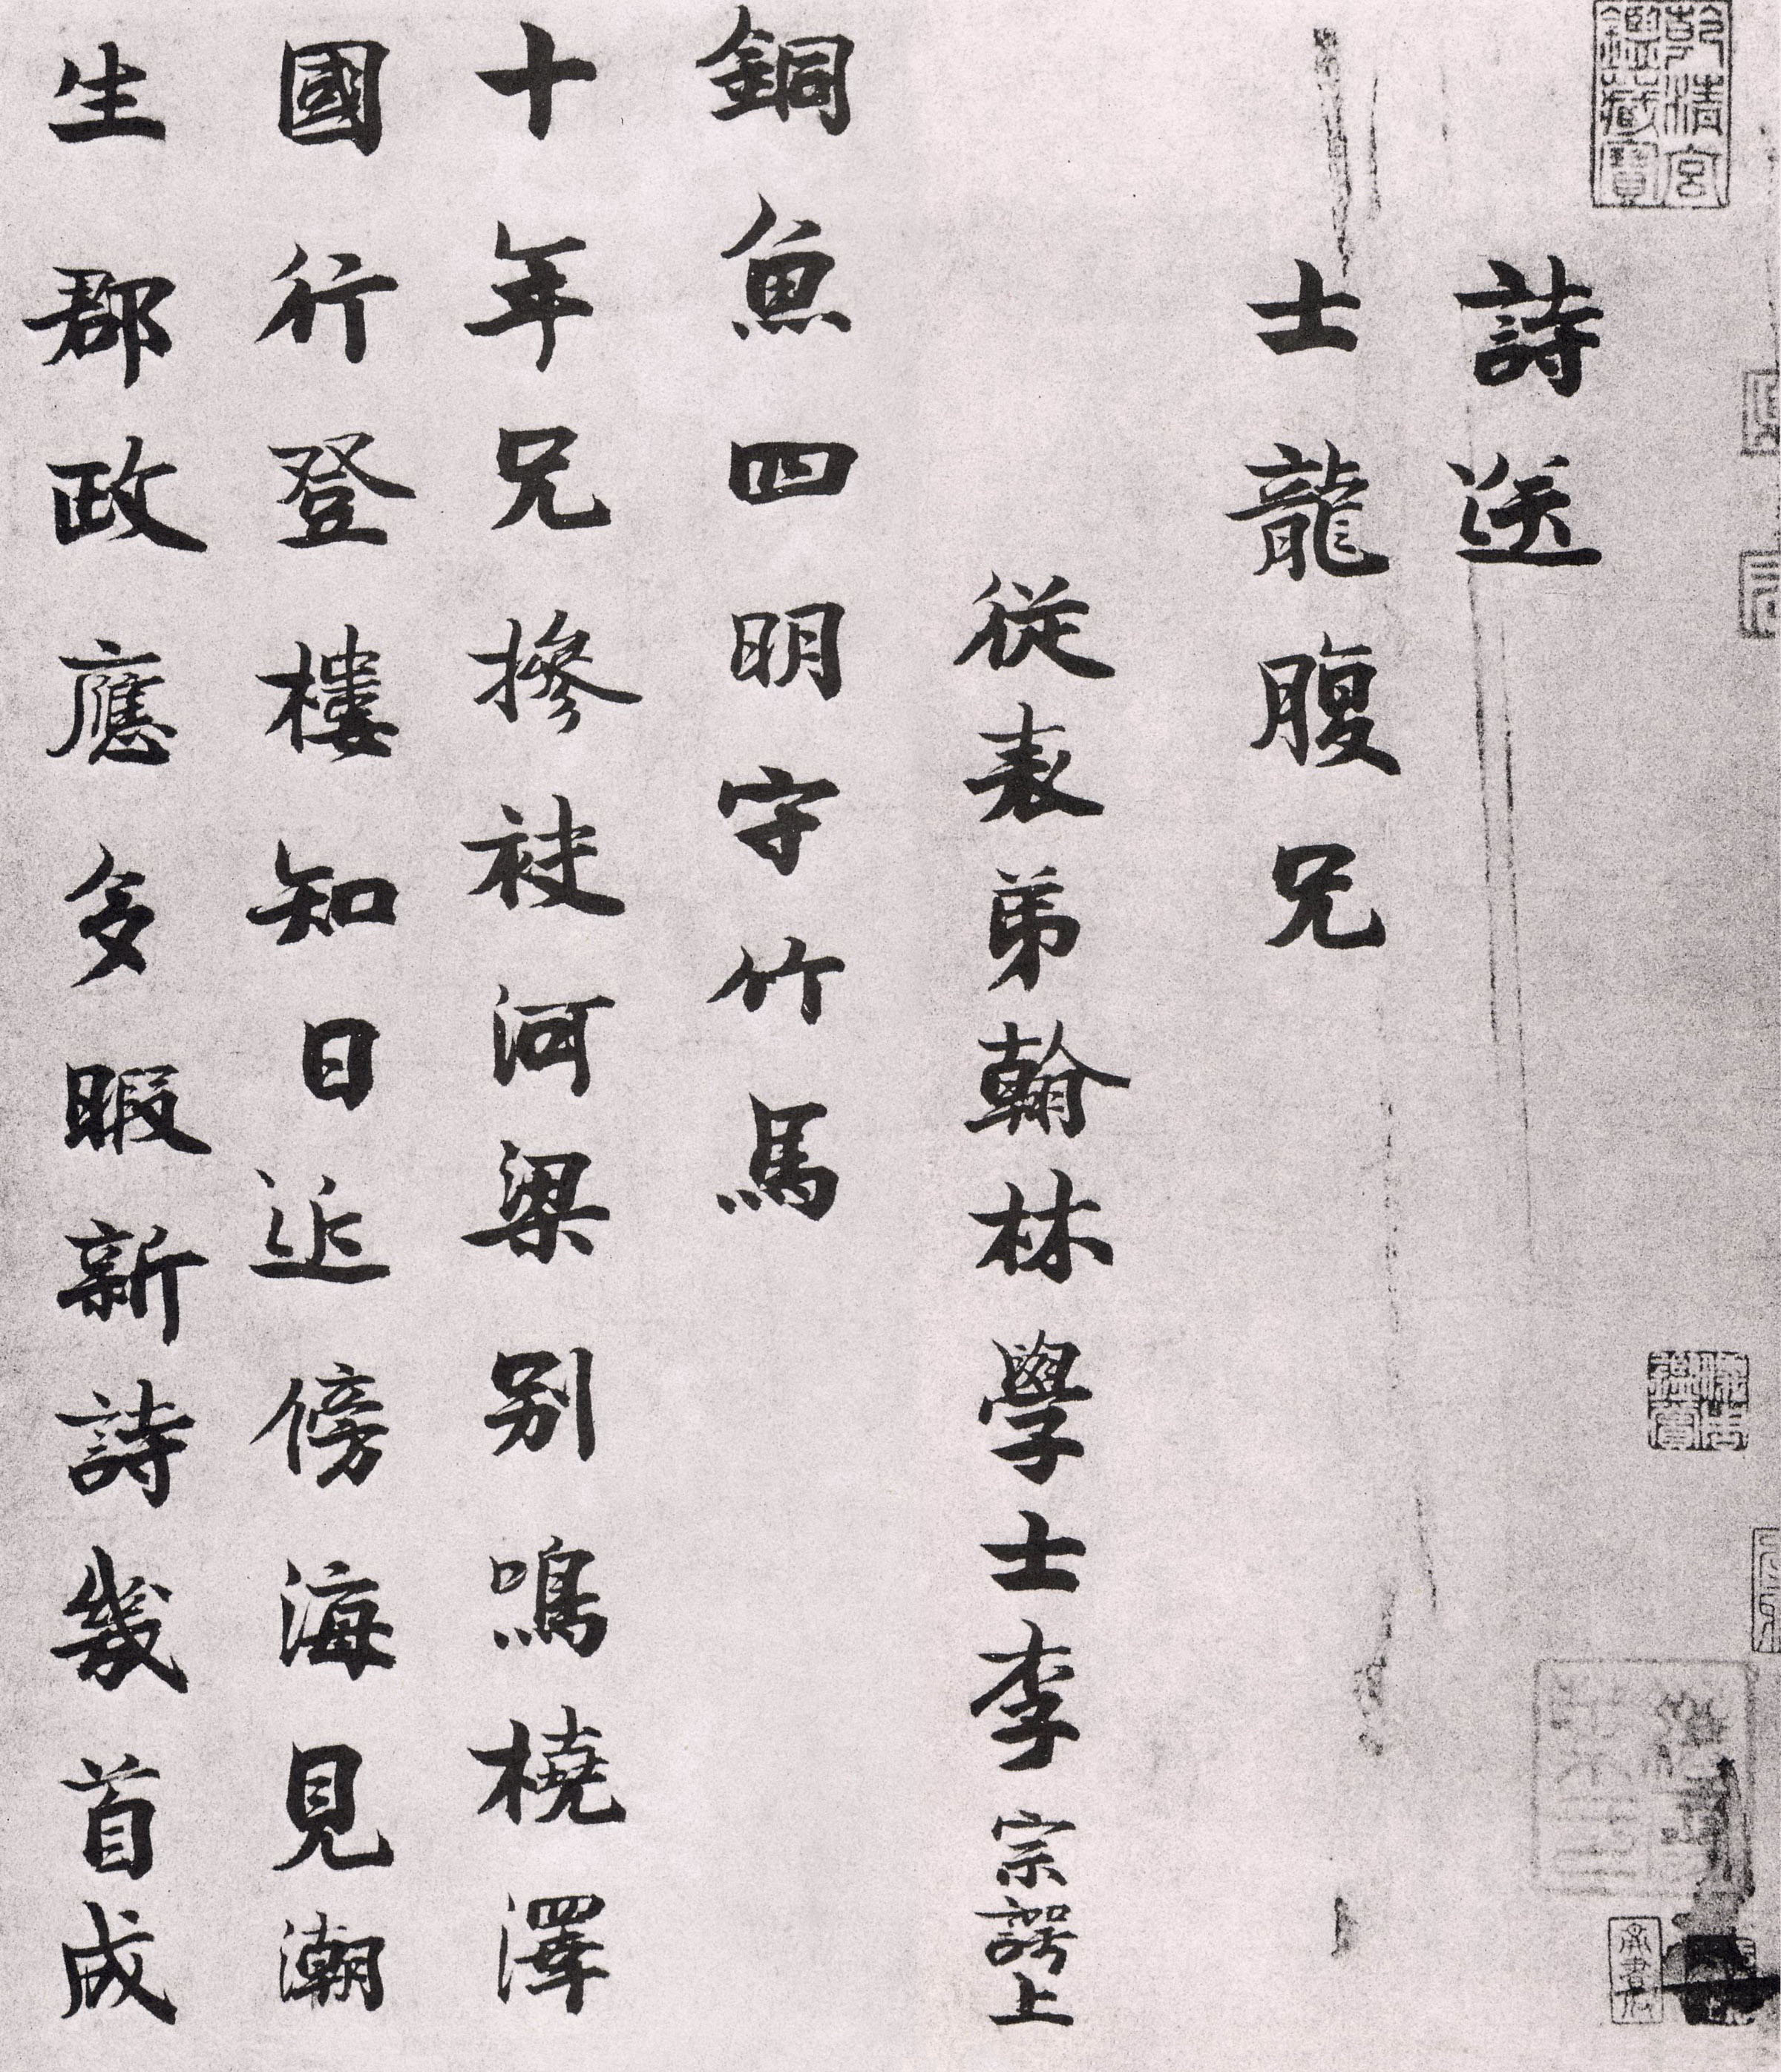 詩送
士龍腹兄
從表弟翰林學士李宗諤上
銅魚四明守竹馬
十年兄摻袂河梁别鳴橈澤
國行登樓知日近傍海見潮
生郡政應多暇新詩幾首成
乾清宮
鑑藏寶